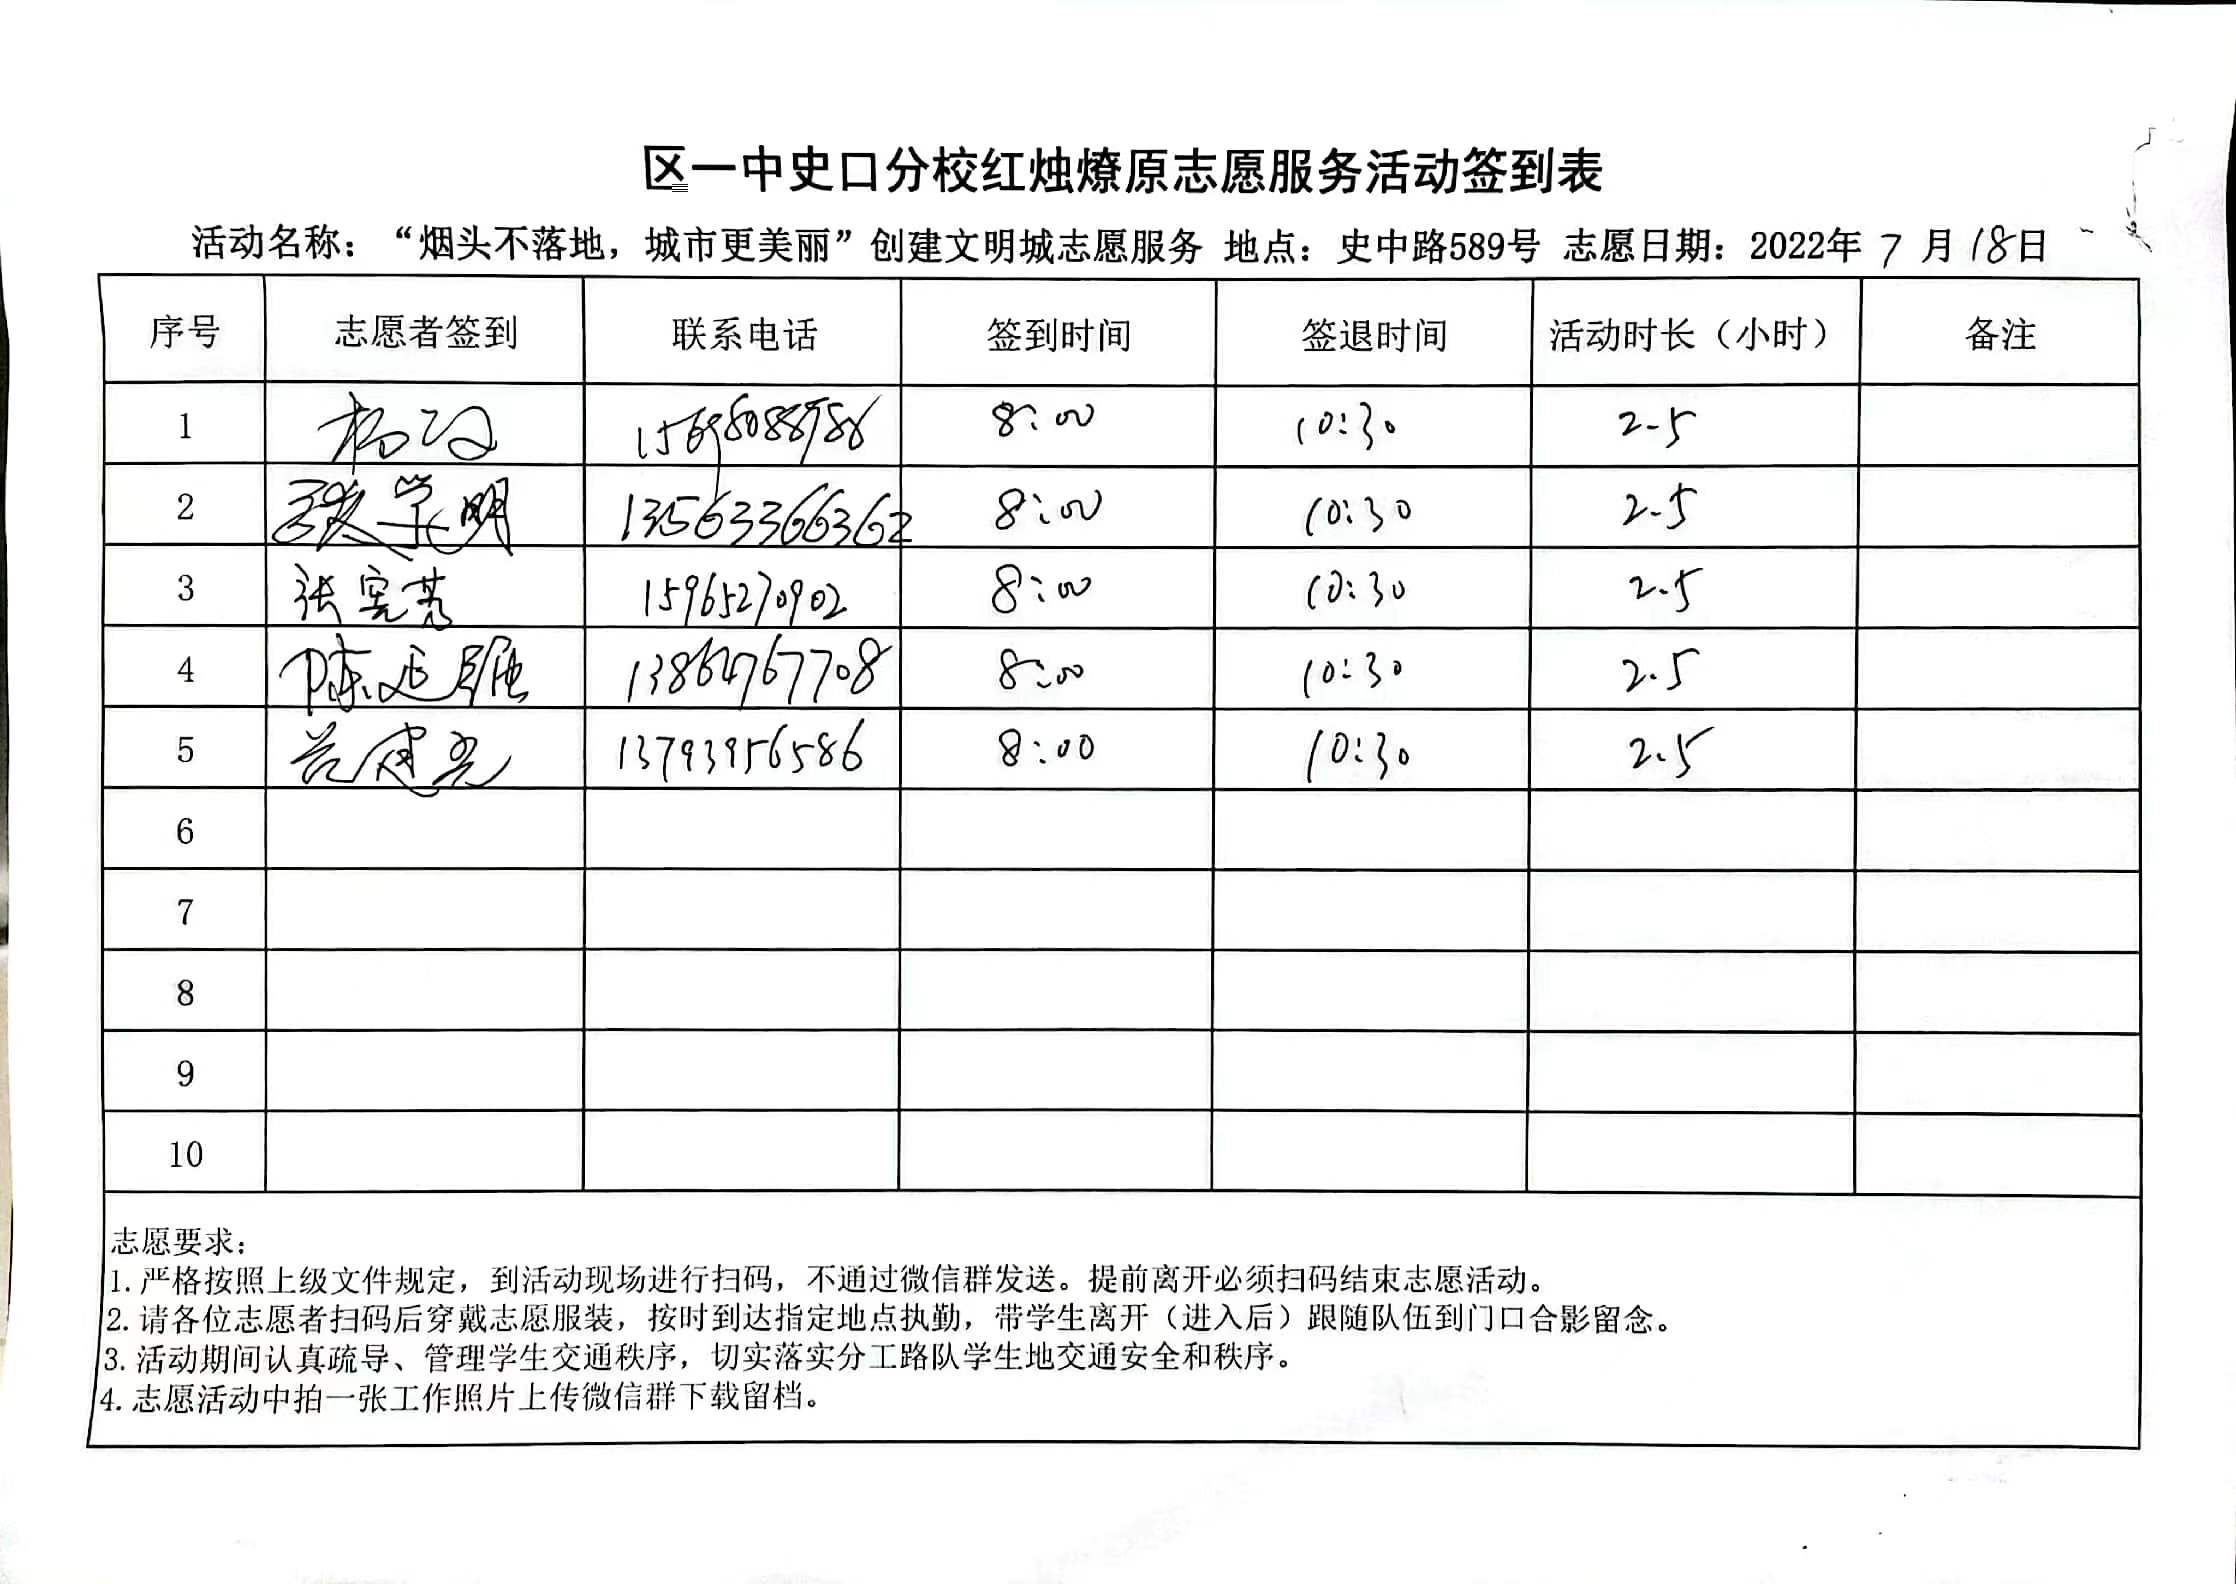 区一中史口分校红烛燎原志愿服务活动签到表
活动名称：“烟头不落地，城市更美丽”创建文明城志愿服务 地点：史中路589号 志愿日期：2022年 7 月 18日
序号 志愿者签到 联系电话 签到时间 签退时间 活动时长（小时） 备注
1 8:00 10:30 2.5
2 学明 13563366362 8:00 10:30 2.5
3 张宪营 15965270902 8:00 10:30 2.5
4 陈延 13864767708 8:00 10:30 2.5
5 建光 13793956586 8:00 10:30 2.5
6
7
8
9
10
志愿要求：
1. 严格按照上级文件规定，到活动现场进行扫码，不通过微信群发送。提前离开必须扫码结束志愿活动。
2. 请各位志愿者扫码后穿戴志愿服装，按时到达指定地点执勤，带学生离开（进入后）跟随队伍到门口合影留念。
3. 活动期间认真疏导、管理学生交通秩序，切实落实分工路队学生地交通安全和秩序。
4. 志愿活动中拍一张工作照片上传微信群下载留档。